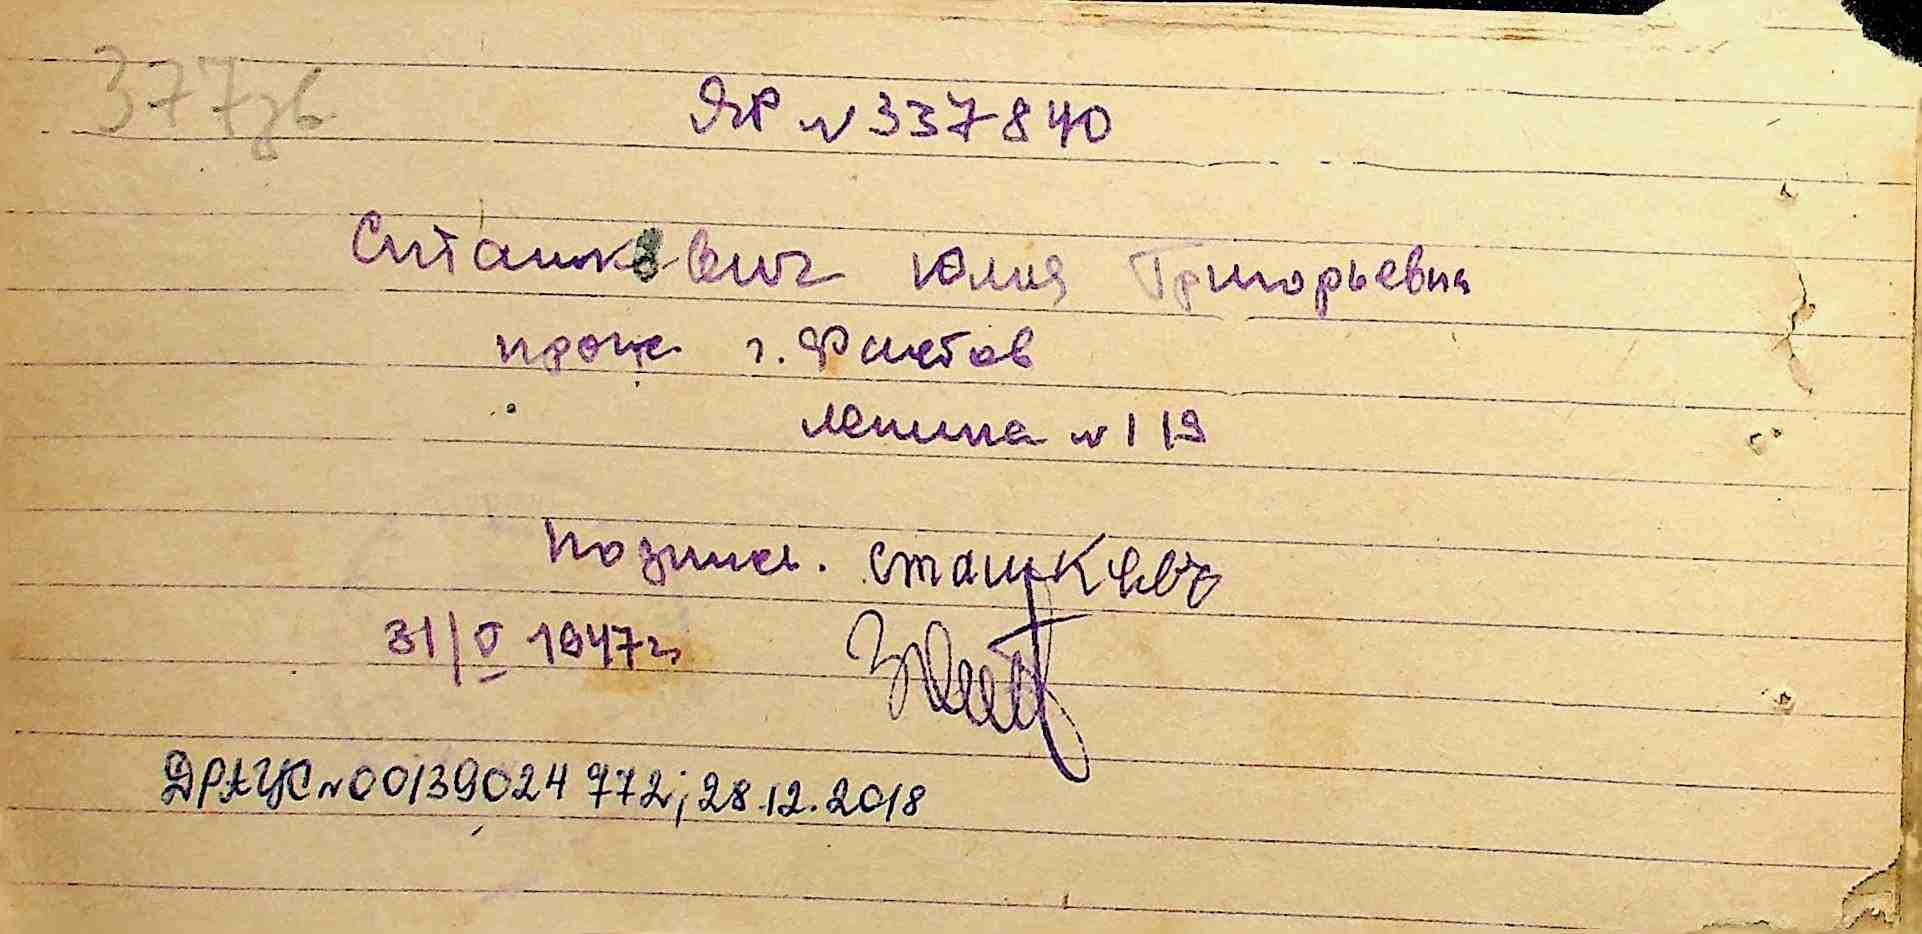 377зв
ЯР № 337840
Ситашкевич Юлия Григорьевна
прож г. Фастов
Ленина № 119
Подпись. Сташкевич
31/V 1947г
ДРАЦС № 00139024772; 28.12.2018